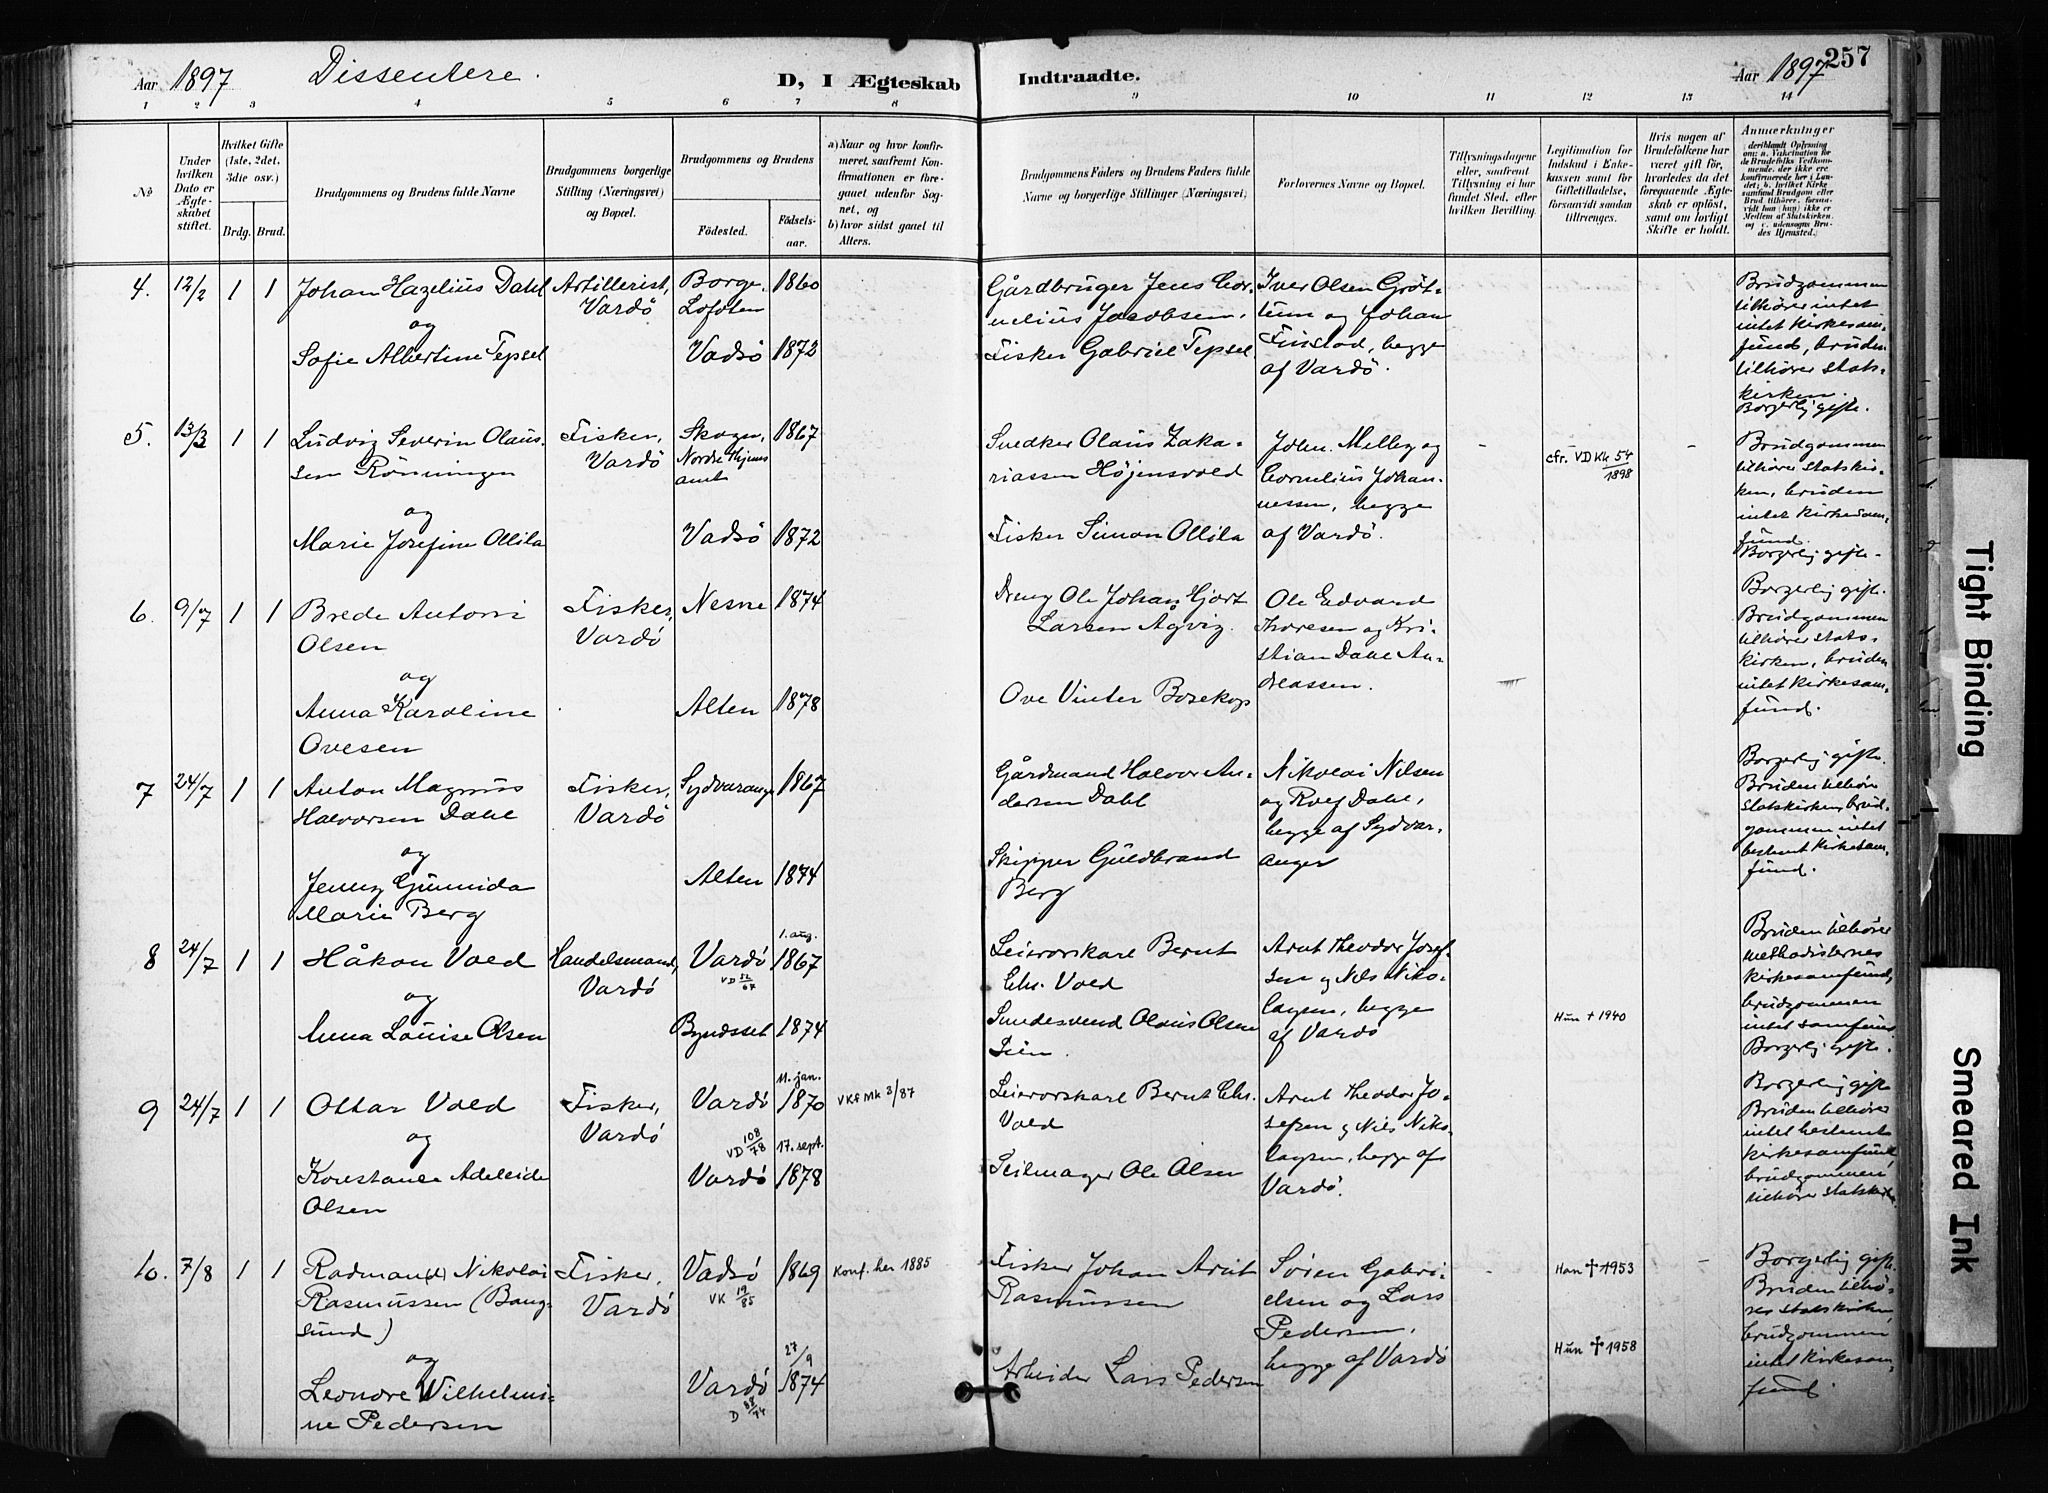 Aar 1897 Dissentere.
D, I Ægteskab Indtraadte.
Aar 1897
257
1 2 3 4 5 6 7 8 9 10 11 12 13 14
No
Under hvilken Dato er Ægteskabet stiftet.
Hvilket Gifte (1ste, 2det, 3die osv.)
Brdg. Brud.
Brudgommens og Brudens fulde Navne
Brudgommens borgerlige Stilling (Næringsvei) og Bopæl.
Brudgommens og Brudens
Fødested.
Fødselsaar.
a) Naar og hvor konfirmeret, saafremt Konfirmationen er foregaaet udenfor Sognet, og
b) hvor sidst gaaet til Alters.
Brudgommens Faders og Brudens Faders fulde Navne og borgerlige Stillinger (Næringsvei)
Forlovernes Navne og Bopæl.
Tillysningsdagene eller, saafremt Tillysning ei har fundet Sted, efter hvilken Bevilling.
Legitimation for Indskud i Enkekassen samt for Giftetilladelse, forsaavidt saadan tiltrænges.
Hvis nogen af Brudefolkene har været gift før, hvorledes da det foregaaende Ægteskab er opløst, samt om lovligt Skifte er holdt.
Anmerkninger
deriblandt Oplysning om: a. Vakcination for de Brudefolks Vedkommende, der ikke ere konfirmerede her i Landet; b. hvilket Kirkesamfund Brudgom eller Brud tilhører, forsaavidt han (hun) ikke er Medlem af Statskirken, og c. udensogns Brudes Hjemsted.
4. 12/2 1 1
Johan Hazelius Dahl
og
Sofie Albertine Tepsel
Artillerist,
Vardö
Borge,
Lofoten
1860
Vadsö 1872
Gårdbruger Jens Cor-
nelius Jacobsen.
Fisker Gabriel Tepsel
Iver Olsen Gröt-
tum og Johan
Finstad, begge
af Vardö.
Brudgommen
tilhörer intet
intet kirkesam-
fund, bruden
tilhörer stats-
kirken.
Borgerlig gifte.
5. 13/3 1 1
Ludvig Severin Olaus-
sen Rönningen
og
Marie Josefine Ollila
Fisker,
Vardö
Skogn,
Nordre Thjems
amt
1867
Vadsö 1872
Snedker Olaus Zaka-
riassen Höjensvold
Fisker Simon Ollila
John. Melby og
Cornelius Johan-
nessen, begge
af Vardö.
-
cfr. VD Kk 54/1898
-
Brudgommen
tilhörer statskir-
ken, bruden
intet kirkesam-
fund.
Borgerlig gifte.
6. 9/7 1 1
Brede Antoni
Olsen
og
Anna Karoline
Ovesen
Fisker,
Vardö
Nesne 1874
Alten 1878
Dreng Ole Johan Hjort
Larsen Agvig.
Ove Vinter Bosekop
Ole Edvard
Thoresen og Kri-
stian Dahl An-
dreassen.
Borgerlig gifte.
Brudgommen
tilhörer stats-
kirken, bruden
intet kirkesam-
fund.
7 24/7 1 1
Anton Magnus
Halvorsen Dahl
og
Jenny Gunnida
Marie Berg
Fisker,
Vardö
Sydvarang 1867
Alten 1874
Gårdmand Halvor An-
dersen Dahl
Skipper Guldbrand
Berg
Nikolai Nilsen
og Rolf Dahl,
begge af Sydvar-
anger
Borgerlig gifte.
Bruden tilhörer
statskirken, brud-
gommen intet
bestemt kirkesam-
fund.
8 24/7 1 1
Håkon Vold
og
Anna Louise Olsen
Handelsmand,
Vardö
Vardö
1. aug.
1867
Byndsset 1874
Leiervorskarl Bernt
Chr. Vold
Olaus Olsen
Arnt Theodor Josef-
sen og Nils Niko-
laysen, begge
af Vardö
Hun + 1940
Bruden tilhörer
methodisternes
kirkesamfund,
brudgommen
intet samfund
Borgerlig gifte.
9 24/7 1 1
Ottar Vold
og
Konstanse Adeleide
Olsen
Fisker,
Vardö
Vardö
11. jan.
1870
VKf Mk 3/87
VD 108/78
17. sept.
Vardö 1878
Leiervorskarl Bernt Chr.
Vold
Seilmager Ole Olsen
Arnt Theodor Jo-
sefsen og Nils Niko-
laysen, begge af
Vardö.
Borgerlig gifte
Bruden tilhörer
intet bestemt
kirkesamfund
brudgommen
tilhörer statskirken
10. 7/8 1 1
Radman(d) Nikolai
Rasmussen (Bang-
sund)
og
Leonore Wilhelmi-
ne Pedersen
Fisker,
Vardö
Vadsö 1869
VK 19/85
Konf. her 1885
27/9
Vardö 1874
D 88/74
Fisker Johan Arnt
Rasmussen
Arbeider Lars Pedersen
Sören Gabri-
elsen og Lars
Pedersen,
begge af Vardö
-
Han ✝ 1953
Hun ✝ 1958
-
Borgerlig gifte.
Bruden tilhö-
rer statskirken,
brudgommen
intet kirkesam-
fund.
Tight Binding
Smeared Ink